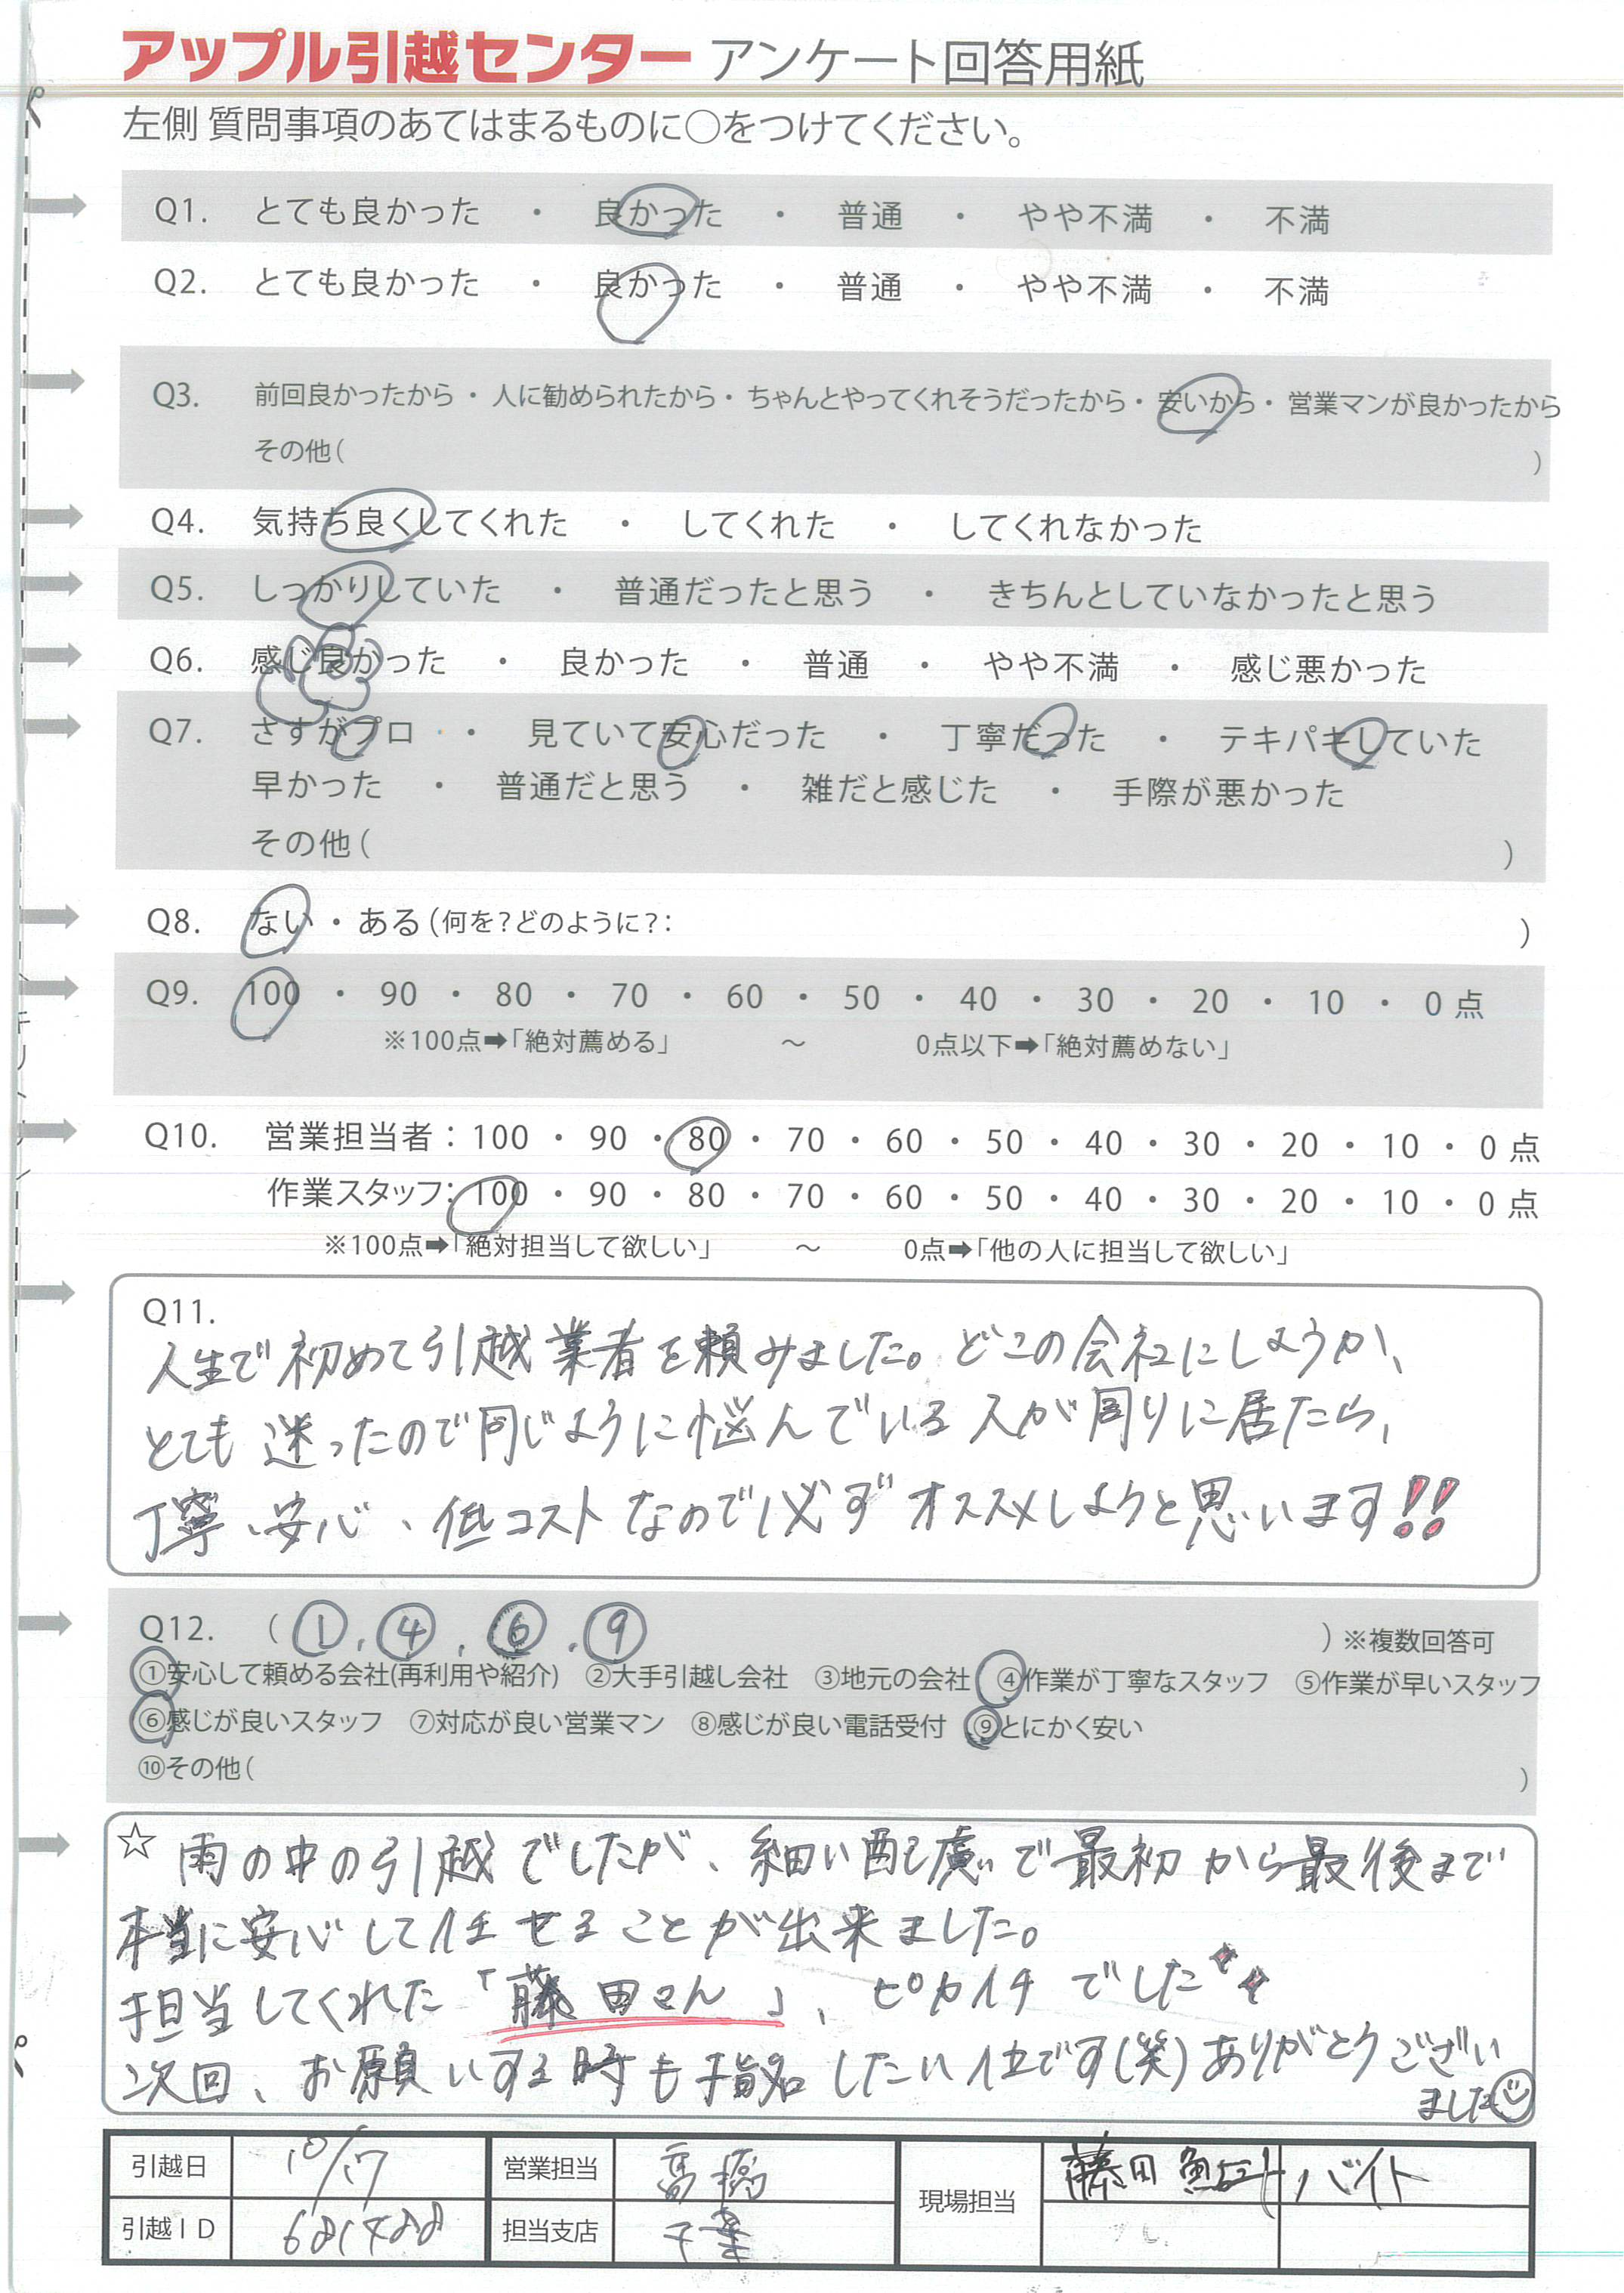 アップル引越センター アンケート回答用紙
左側 質問事項のあてはまるものに○をつけてください。
Q1. とても良かった ・ 良かった ・ 普通 ・ やや不満 ・ 不満
Q2. とても良かった ・ 良かった ・ 普通 ・ やや不満 ・ 不満
Q3. 前回良かったから・人に勧められたから・ちゃんとやってくれそうだったから・安いから・営業マンが良かったから
その他( )
Q4. 気持ち良くしてくれた ・ してくれた ・ してくれなかった
Q5. しっかりしていた ・ 普通だったと思う ・ きちんとしていなかったと思う
Q6. 感じ良かった ・ 良かった ・ 普通 ・ やや不満 ・ 感じ悪かった
Q7. さすがプロ ・ 見ていて安心だった ・ 丁寧だった ・ テキパキしていた
早かった ・ 普通だと思う ・ 雑だと感じた ・ 手際が悪かった
その他( )
Q8. ない・ある(何を?どのように?: )
Q9. 100 ・ 90 ・ 80 ・ 70 ・ 60 ・ 50 ・ 40 ・ 30 ・ 20 ・ 10 ・ 0 点
※100点➡「絶対薦める」 ～ 0点以下➡「絶対薦めない」
Q10. 営業担当者:100 ・ 90 ・ 80 ・ 70 ・ 60 ・ 50 ・ 40 ・ 30 ・ 20 ・ 10 ・ 0 点
作業スタッフ:100 ・ 90 ・ 80 ・ 70 ・ 60 ・ 50 ・ 40 ・ 30 ・ 20 ・ 10 ・ 0 点
※100点➡「絶対担当して欲しい」 ～ 0点➡「他の人に担当して欲しい」
Q11.
人生で初めて引越業者を頼みました。どこの会社にしようか、
とても迷ったので同じように悩んでいる人が周りに居たら、
丁寧、安心、低コストなので必ずオススメしようと思います!!
Q12. (①,④,⑥,⑨ )※複数回答可
①安心して頼める会社(再利用や紹介) ②大手引越し会社 ③地元の会社 ④作業が丁寧なスタッフ ⑤作業が早いスタッフ
⑥感じが良いスタッフ ⑦対応が良い営業マン ⑧感じが良い電話受付 ⑨とにかく安い
⑩その他( )
☆ 雨の中の引越でしたが、細い配慮で最初から最後まで
本当に安心して任せることが出来ました。
担当してくれた「藤田さん」、ピカイチでした
次回、お願いする時も指名したい位です(笑)ありがとうござい
ました
引越日 10/17 営業担当 髙橋 現場担当 藤田 バイト
引越ID 担当支店 千葉
キリトリ